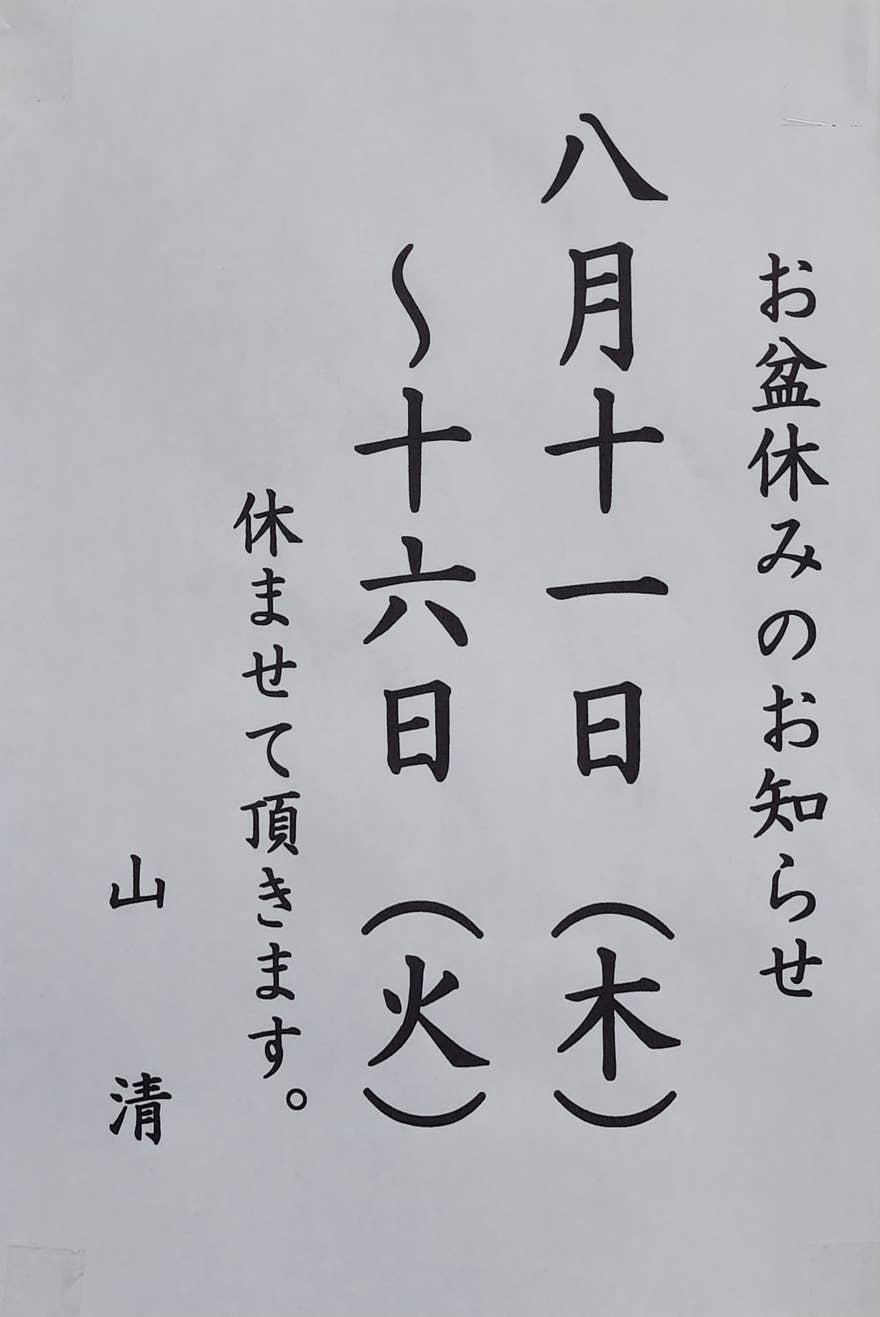 お盆休みのお知らせ
八月十一日（木）
〜十六日（火）
休ませて頂きます。
山　清